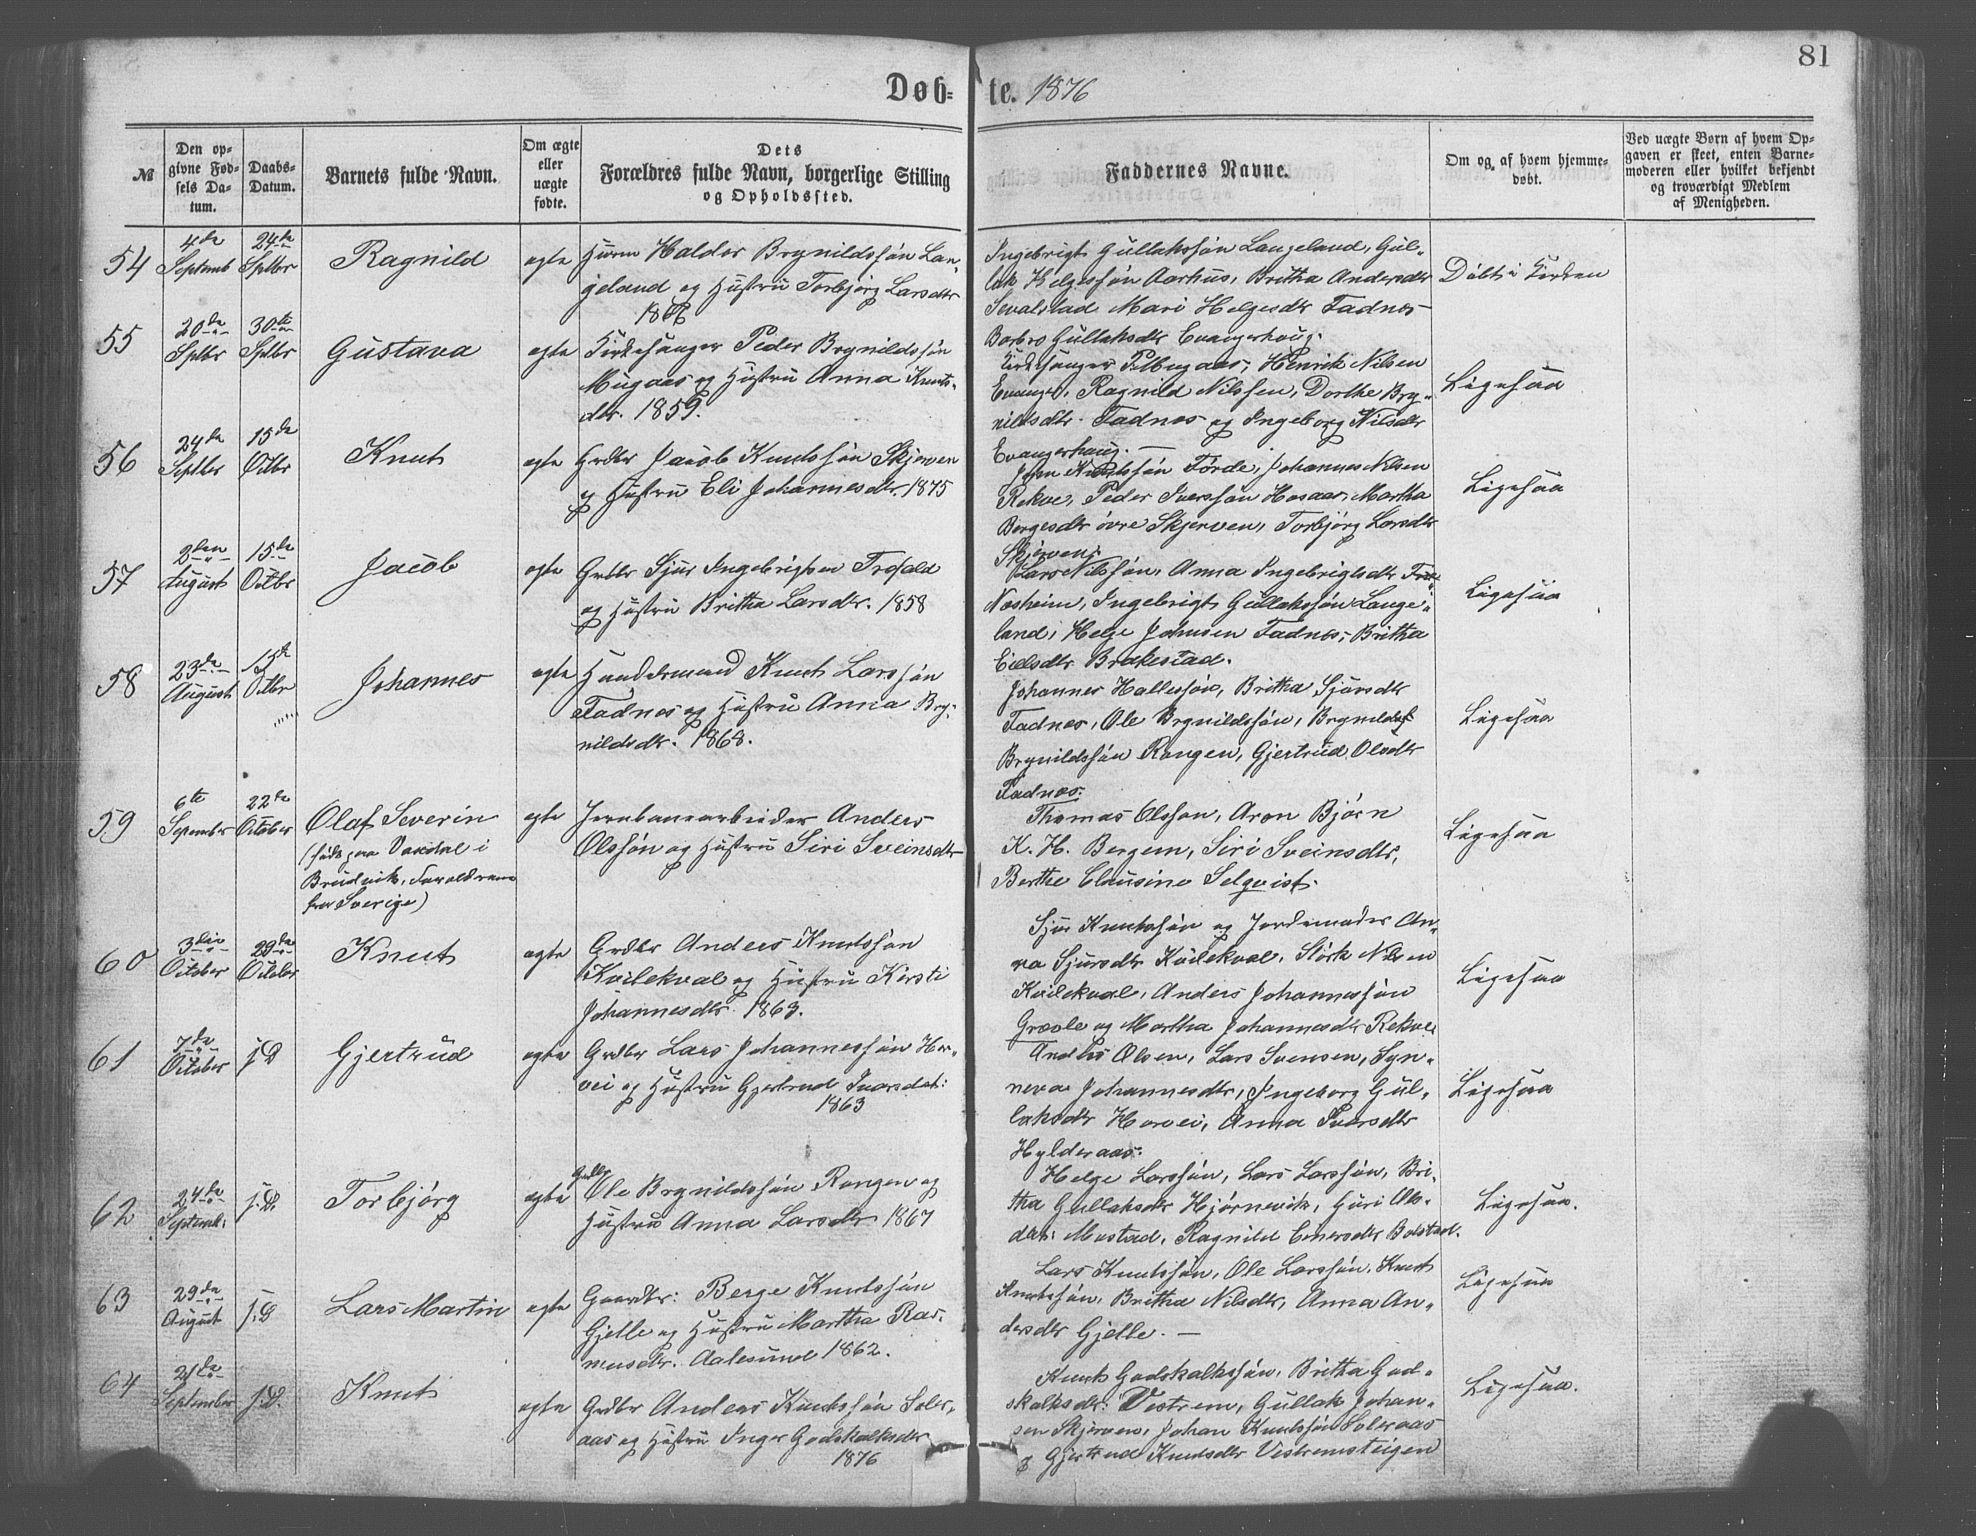 81
Døb= te. 1876
№
Den op-
givne Fød-
sels Da-
tum.
Daabs-
Datum.
Barnets fulde Navn.
Om ægte
eller
uægte
fødte.
Dets
Forældres fulde Navn, borgerlige Stilling
og Opholdssted.
Faddernes Navne.
Om og, af hvem hjemme-
døbt.
Ved uægte Børn af hvem Op-
gaven er skeet, enten Barne-
moderen eller hvilket bekjendt
og troværdigt Medlem
af Menigheden.
54
4de
Septemb
24de
Septbr
Ragnild
ægte
Huusm Haldor Brynildssøn Lan-
geland og Hustru Torbjørg Larsdtr
1866
Ingebrigt Gullakssøn Langeland, Gul-
lak Helgessøn Aarhus, Britha Andersdtr
Sevalstad Mari Helgesdtr Fadnes
Borbro Gullaksdtr Evangerhaug.
Døbt i Kirken
55
20de
Septbr
30te
Septbr
Gustava
ægte
Kirkesanger Peder Brynildssøn
Mugaas og Hustru Anna Knuts-
dtr. 1859.
Kirkesanger P. Mugaas, Henrik Nilsen
Evanger, Ragnild Nilssen, Dorthe Bry-
nildsdtr Fadnes og Ingeborg Nilsdtr
Evangerhaug. —
Ligesaa
56
24de
Septbr
15de
Octbr
Knut
ægte
Grdbr Jacob Knutssøn Skjerven
og Hustru Eli Johannesdtr. 1875
John Knutssøn Førde, Johannes Nilsen
Rekve, Peder Iverssøn Hosaas, Martha
Borgesdtr øvre Skjerven, Torbjørg Larsdtr
Skjerven.
Ligesaa
57
2den
August
15de
Octbr
Jacob
ægte
Grdbr Sjur Ingebrigtsen Trefald
og Hustru Britha Larsdtr. 1858
Lars Nilssøn, Anna Ingebrigtsdtr
Næsheim, Ingebrigt Gullakssøn Lange-
land, Helge Johnsen Fadnes, Britha
Eilsdtr Brakestad.
Ligesaa
58
23de
August
15de
Octbr
Johannes
ægte
Handelsmand Knut Larssøn
Fadnes og Hustru Anna Bry-
nildsdtr. 1868.
Johannes Hallessøn, Britha Sjursdtr
Fadnes, Ole Brynildssøn, Brynild
Brynildssøn Rongen, Gjertrud Olsdtr
Fadnes.
Ligesaa
59
6te
September
22de
October
Olaf Severin
(født paa Vaxdal i
Bruvik, Forældrene
fra Sverige)
ægte
Jernbanearbeider Anders
Olssøn og Hustru Siri Sveinsdtr
Thomas Olsson, Aron Bjørn
K. H. Bergem, Siri Sveinsdtr,
Berthe Clausine Selqvist.
Ligesaa
60
3die
October
29de
October
Knut
ægte
Grdbr Anders Knutssøn
Kvilekval og Hustru Kirsti
Johannesdtr. 1863.
Sjur Knutssøn og Jordemoder An-
na Sjursdtr Kvilekval, Størk Nilsen
Kvilekval, Anders Johannessøn
Græsle og Martha Johannesdtr Rekve
Ligesaa
61
7de
October
s. D
Gjertrud
ægte
Grdbr Lars Johannessøn Hor-
vei og Hustru Gjertrud Ivarsdat:
1863
Anders Olsen, Lars Svensen, Syn-
neva Johannesdtr, Ingeborg Gul-
laksdtr Horvei, Anna Ivarsdtr
Hylderaas.
Ligesaa
62
24de
Septemb:
s. D.
Torbjørg
ægte
Grdbr
Ole Brynildssøn Rongen og
Hustru Anna Larsdtr 1867
Helge Larssøn, Lars Larssøn, Bri-
tha Gullaksdtr Hjørnevik, Guri Ols-
datr: Mestad, Ragnild Einersdtr Bolstad.
Ligesaa.
63
29de
August
s. D
Lars Martin
ægte
Gaardbr: Berge Knutssøn
Gjelle og Hustru Martha Ras-
musdtr. Aalesund 1862.
Lars Knutssøn, Ole Larssøn, Knut
Knutssøn, Britha Nilsdtr, Anna An-
dersdtr Gjelle. —
Ligesaa
64
21de
September
s. D.
Knut
ægte
Grdbr Anders Knutssøn Soler-
aas og Hustru Inger Godskalksdtr
1876
Knut Godskalkssøn, Britha God-
skalksdtr: Vestrem, Gullak Johan-
sen Skjerven, Johan Knutssøn Soleraas
og Gjertrud Knutsdtr Vestremsteigen
Ligesaa.